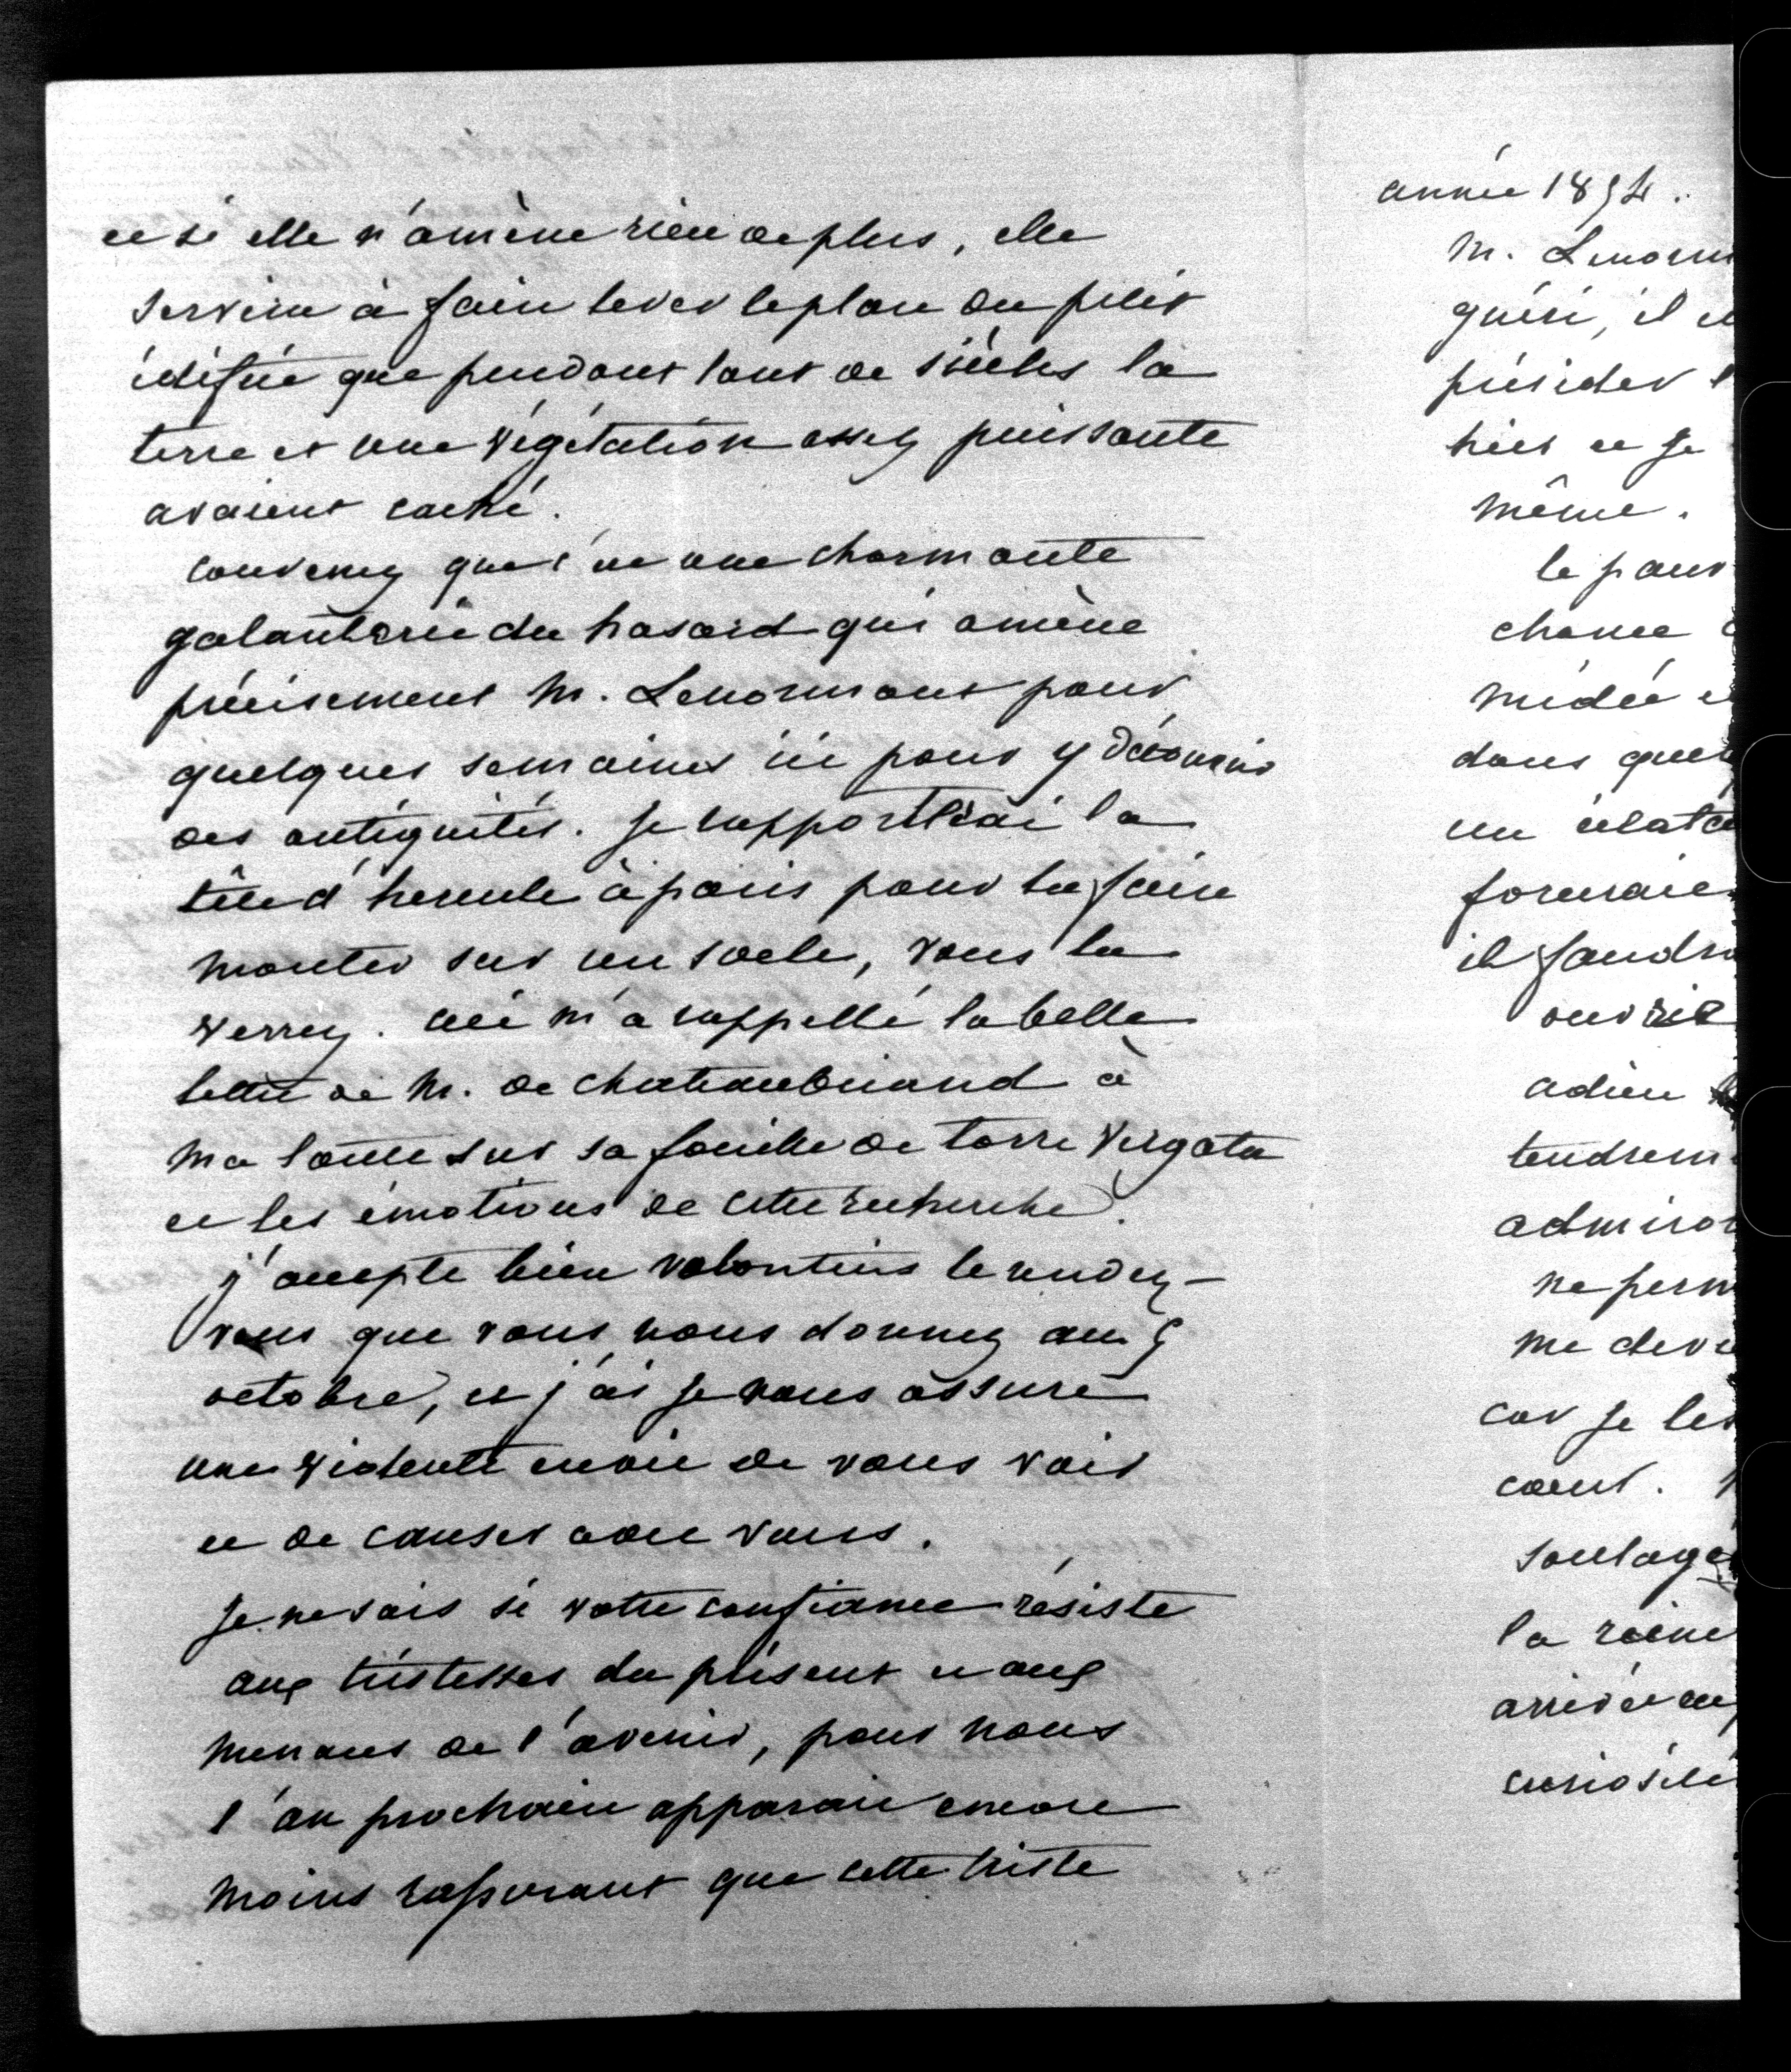 et si elle n'amène rien de plus, elle
servira à faire lever le plan du petit
édifice que pendant tant de siècles la
terre et une végétation assez puissante
avaient caché.
convenez que c'est une charmante
galanterie du hasard qui amène
précisement M. Lenormant pour
quelques semaines ici pour y découvrir
des antiquités. je rapporterai la
tête d'hercule à paris pour la faire
monter sur un socle, vous la
verrez. ceci m'a rappellé la belle
lettre de M. de chateaubriand à
ma tante sur sa fouille de torre Vergata
et les émotions de cette recherche.
j'accepte bien volontiers le rendez-
vous que vous nous donnez au
octobre, et j'ai je vous assure
une violente envie de vous voir
et de causer avec vous.
je ne sais si votre confiance résiste
aux tristesses du présent et aux
menaces de l'avenir, pour nous
l'an prochain apparait encore
moins rassurant que cette triste
année 1854.
M. Lenorm
guéri, il e
présider l
hier et se
même.
le pauv
chance
médée e
dans quel
un éclat
formaie
il faudra
ouvrir
adieu
tendrem
admirat
ne perm
me deve
car je les
coeur.
soulage
la reine
arrivée au
curiosité